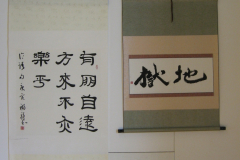 有朋自遠
方來不亦
樂乎
地獄